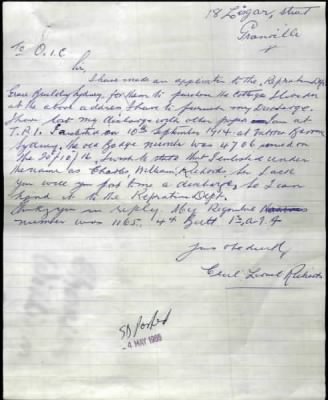 18 Lizar, street
Granville
To O.I.C
Sir.
I have made an application to the Repatriation Dept
Grace Building Sydney, for them to purchase the Cottage I
at the above address I have to furnish my Discharge.
I have lost my discharge with other papers I am a
T.P.I. I enlisted on 10th September 1914. at
Sydney. the old Badge number was 4706 issued on
The 20/10/16. I wish to state that I enlisted under
the name as Charles William Richards. So I ask
you will you post me a discharge so I can
send it to the Repatriation Dept.
thanking you in reply. My Regimental
number was 1165. 4th Batt 1st A.I.F
Yours obediently
Cecil Lionel Richards
SD Posted
4 MAY 1955